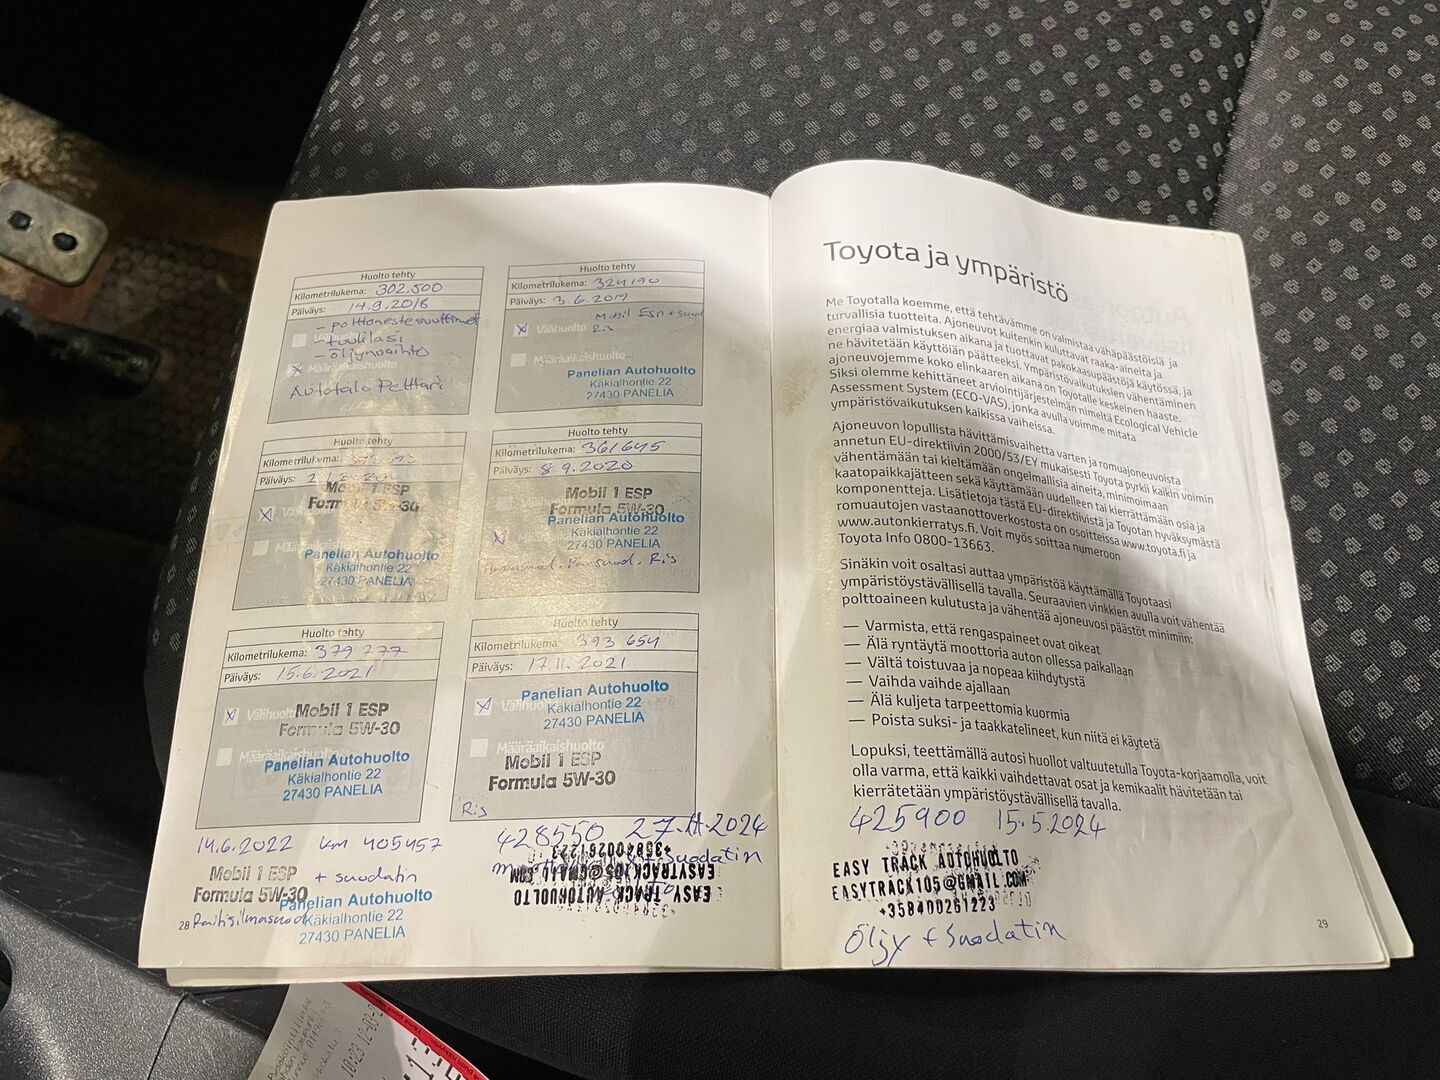 Huolto tehty
Kilometrilukema: 302.500
Päiväys: 14.9.2018
- polttonestesuuttimet
- tuulilasi
- öljynvaihto
X Määräaikaishuolto
Autotalo Pelttari
Huolto tehty
Kilometrilukema: 324190
Päiväys: 3.6.2019
X Välihuolto
Mobil Esp + suod
Ris
Määräaikaishuolto
Panelian Autohuolto
Käkialhontie 22
27430 PANELIA
Huolto tehty
Kilometrilukema:
Päiväys:
Mobil 1 ESP
Formula 5W-30
X Välihuolto
Panelian Autohuolto
Käkialhontie 22
27430 PANELIA
Huolto tehty
Kilometrilukema: 361645
Päiväys: 8.9.2020
Mobil 1 ESP
Formula 5W-30
Panelian Autohuolto
Käkialhontie 22
27430 PANELIA
X
suod. Ris
Huolto tehty
Kilometrilukema: 379 777
Päiväys: 15.6.2021
X Välihuolto
Mobil 1 ESP
Formula 5W-30
Määräaikaishuolto
Panelian Autohuolto
Käkialhontie 22
27430 PANELIA
Huolto tehty
Kilometrilukema: 393 654
Päiväys: 17.11.2021
X Välihuolto
Panelian Autohuolto
Käkialhontie 22
27430 PANELIA
Määräaikaishuolto
Mobil 1 ESP
Formula 5W-30
Ris
14.6.2022 km 405457
Mobil 1 ESP
Formula 5W-30
+ suodatin
Raitisilmasuod
Panelian Autohuolto
Käkialhontie 22
27430 PANELIA
28
428550 27.11.2024
+ Suodatin
EASY TRACK AUTOHUOLTO
EASYTRACK105@GMAIL.COM
+358400261223
Toyota ja ympäristö
Me Toyotalla koemme, että tehtävämme on valmistaa vähäpäästöisiä ja
turvallisia tuotteita. Ajoneuvot kuitenkin kuluttavat raaka-aineita ja
energiaa valmistuksen aikana ja tuottavat pakokaasupäästöjä käytössä, ja
ne hävitetään käyttöiän päätteeksi. Ympäristövaikutuksien vähentäminen
ajoneuvojemme koko elinkaaren aikana on Toyotalle keskeinen haaste.
Siksi olemme kehittäneet arviointijärjestelmän nimeltä Ecological Vehicle
Assessment System (ECO-VAS), jonka avulla voimme mitata
ympäristövaikutuksen kaikissa vaiheissa.
Ajoneuvon lopullista hävittämisvaihetta varten ja romuajoneuvoista
annetun EU-direktiivin 2000/53/EY mukaisesti Toyota pyrkii kaikin voimin
vähentämään tai kieltämään ongelmallisia aineita, minimoimaan
kaatopaikkajätteen sekä käyttämään uudelleen tai kierrättämään osia ja
komponentteja. Lisätietoja tästä EU-direktiivistä ja Toyotan hyväksymästä
romuautojen vastaanottoverkostosta on osoitteissa www.toyota.fi ja
www.autonkierratys.fi. Voit myös soittaa numeroon
Toyota Info 0800-13663.
Sinäkin voit osaltasi auttaa ympäristöä käyttämällä Toyotaasi
ympäristöystävällisellä tavalla. Seuraavien vinkkien avulla voit vähentää
polttoaineen kulutusta ja vähentää ajoneuvosi päästöt minimiin:
— Varmista, että rengaspaineet ovat oikeat
— Älä ryntäytä moottoria auton ollessa paikallaan
— Vältä toistuvaa ja nopeaa kiihdytystä
— Vaihda vaihde ajallaan
— Älä kuljeta tarpeettomia kuormia
— Poista suksi- ja taakkatelineet, kun niitä ei käytetä
Lopuksi, teettämällä autosi huollot valtuutetulla Toyota-korjaamolla, voit
olla varma, että kaikki vaihdettavat osat ja kemikaalit hävitetään tai
kierrätetään ympäristöystävällisellä tavalla.
425900 15.5.2024
EASY TRACK AUTOHUOLTO
EASYTRACK105@GMAIL.COM
+358400261223
Öljy + Suodatin
29